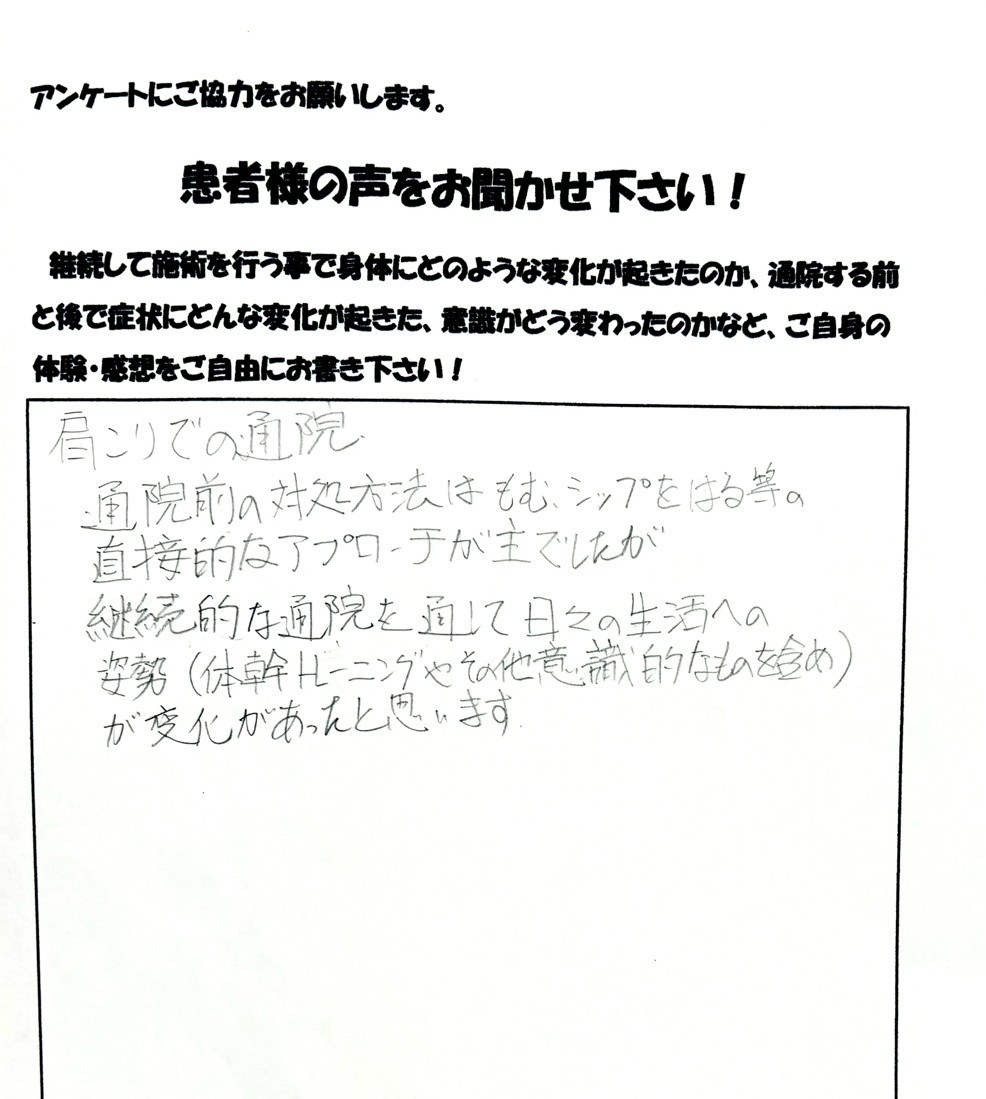 アンケートにご協力をお願いします。
患者様の声をお聞かせ下さい!
継続して施術を行う事で身体にどのような変化が起きたのか、通院する前
と後で症状にどんな変化が起きた、意識がどう変わったのかなど、ご自身の
体験・感想をご自由にお書き下さい!
肩こりでの通院
通院前の対処方法はもむ、シップをはる等の
直接的なアプローチが主でしたが
継続的な通院を通して日々の生活への
姿勢(体幹トレーニングやその他意識的なものを含め)
が変化があったと思います.